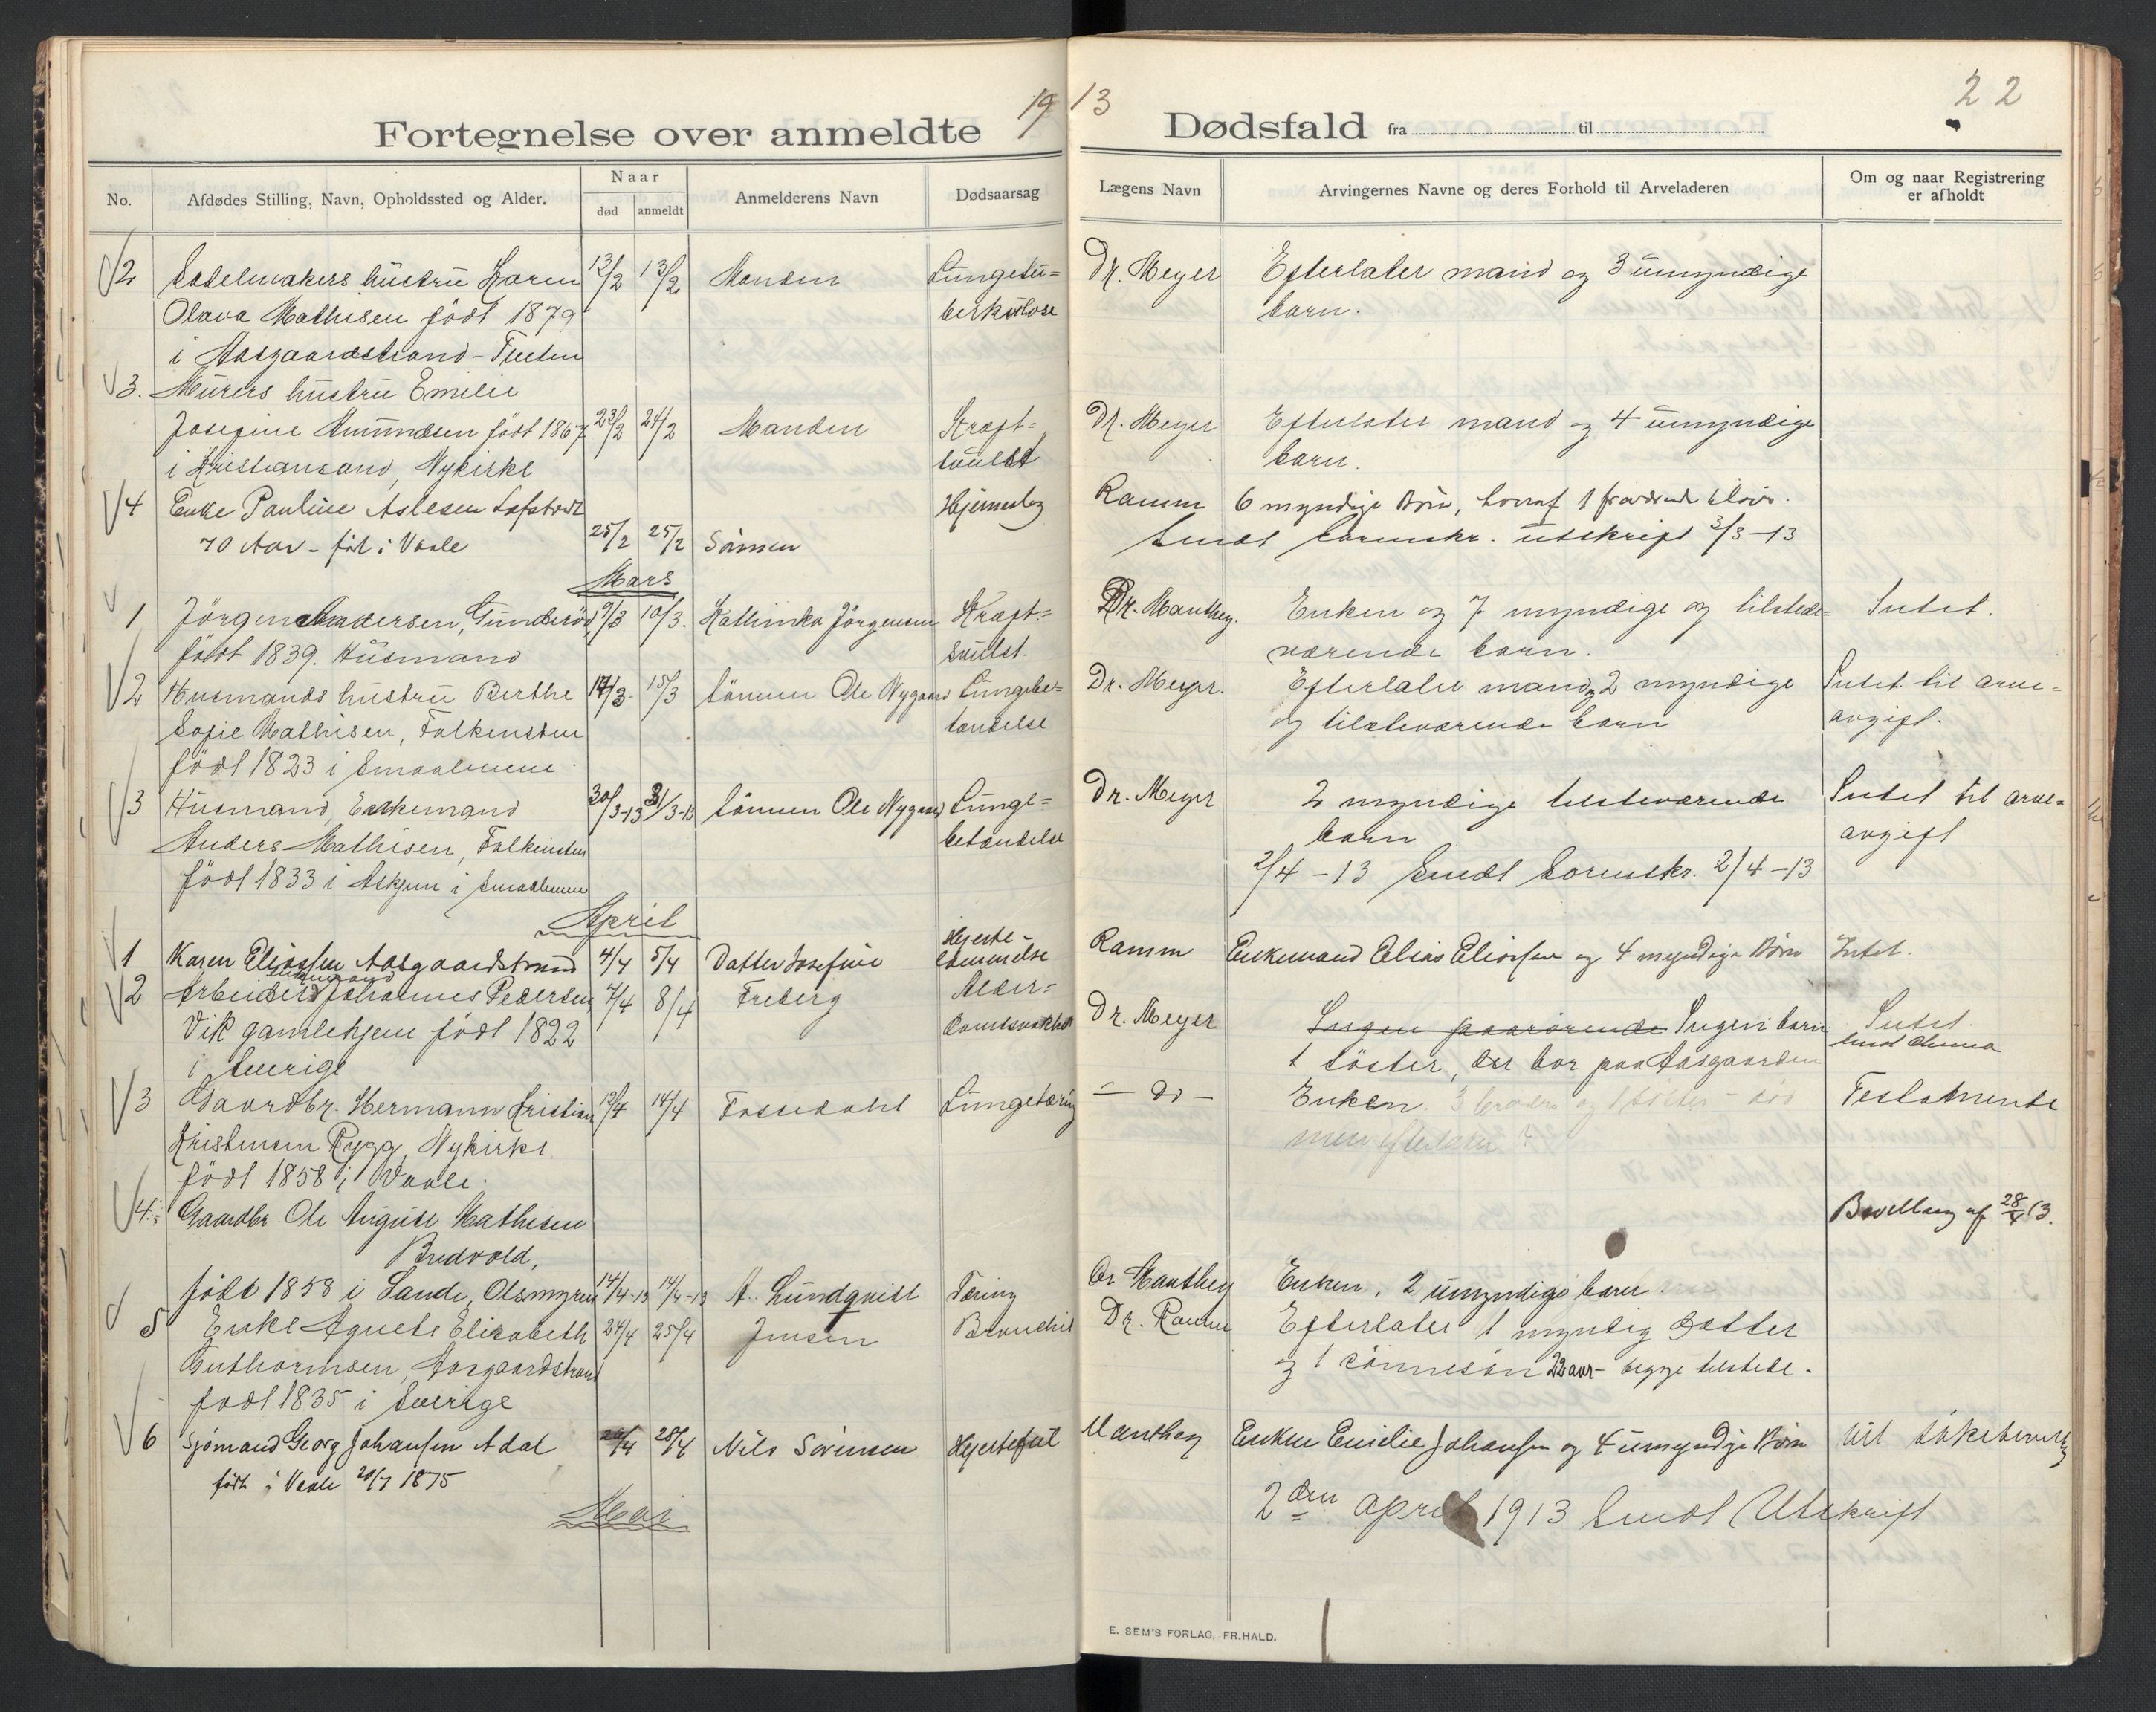 19 13
22
Fortegnelse over anmeldte Dødsfald fra til
No.
Afdødes Stilling, Navn, Opholdssted og Alder.
Naar
død
anmeldt
Anmelderens Navn
Dødsaarsag
Lægens Navn
Arvingernes Navne og deres Forhold til Arveladeren
Om og naar Registrering
er afholdt
2 Sadelmakers hustru Karen 13/2 13/2 Manden Lungetu= Dr. Meyer Efterlater mand og 3 umyndige
Olava Mathisen född 1879 berkulose barn.
i Aasgaardstrand -
3. Murers hustru Emilie
Josefine Amundsen född 1867 23/2 24/2 Manden Kræft= Dr. Meyer Efterlater mand og 4 umyndige
i Kristiansand, Nykirke svulst barn.
4 Enke Pauline Aslesen Hjerneslag Ramm 6 myndige Børn, hvoraf 1 fraværende
70 Aar - föt i Vaale 25/2 25/2 Sönnen Sendt sorenskr. utskrift 3/3-13
Mars
1 Jörgen Andersen, Gunderöd, 9/3 10/3. Kathinka Jörgensen Kræft= Dr. Manthey. Enken og 7 myndige og tilstede= Intet.
född 1839. Husmand svulst. værende barn.
2 Husmands hustru Berthe 14/3. 15/3 Sönnen Ole Nygaard Lungebe= Dr. Meyer. Efterlater mand, 2 myndige Intet til arve=
Sofie Mathisen, Falkensten tændelse og tilstedeværende barn avgift.
född 1823 i Smaalenene
3 Husmand, Enkemand 30/3-13 31/3-13 Sönnen Ole Nygaard Lunge= Dr. Meyer 2 myndige tilstedeværende Intet til arve=
Anders Mathisen, Falkensten betændelse barn avgift
född 1833 i Askjem i Smaalenene 2/4-13 Sendt Sorenskr. 2/4-13
April
1 Karen Eliassen Aasgaardstrand 4/4 5/4 Datter Josefine Hjerte- Ramm Enkemand Elias Eliassen og 4 myndige Børn Intet.
lammelse
2 Arbeider Johannes Pedersen, 7/4 8/4 Freberg Alder= Dr. Meyer Ingen paarørende Ingen barn Intet
Vik gamlehjem född 1822 domssvakhet 1 söster, der bor paa Aasgaarden
i Sverige
3 Gaardbr. Hermann Kristian 13/4 14/4 Fossedahl Lungetæring - do - Enken. 3 brødre og 1 söster - død Testamente
Kristensen Rygg, Nykirke
född 1858 i Vaale.
4. Gaardbr. Ole August Mathisen Bevilling af 28/4 13.
Bredvold,
född 1858 i Sande, Olsmyren 14/4-13 14/4-13 A. Lundqvist Tæring Dr Manthey Enken, 2 umyndige barn
5 Enke Agnete Elisabeth 24/4 25/4 Jensen Bronchit Dr. Ramm Efterlater 1 myndig Datter
Guthormsen, Aasgaardstrand og 1 sönnesön 22 aar - begge tilstede.
född 1835 i Sverige
6 Sjömand Georg Johansen Adal 26/4 28/4 Nils Sörensen Hjertefeil Manthey Enken Emilie Johansen og 4 umyndige Børn
födt i Vaale 20/7 1875 2den april 1913 Sendt Utskrift
Mai
E. SEM'S FORLAG, FR.HALD.